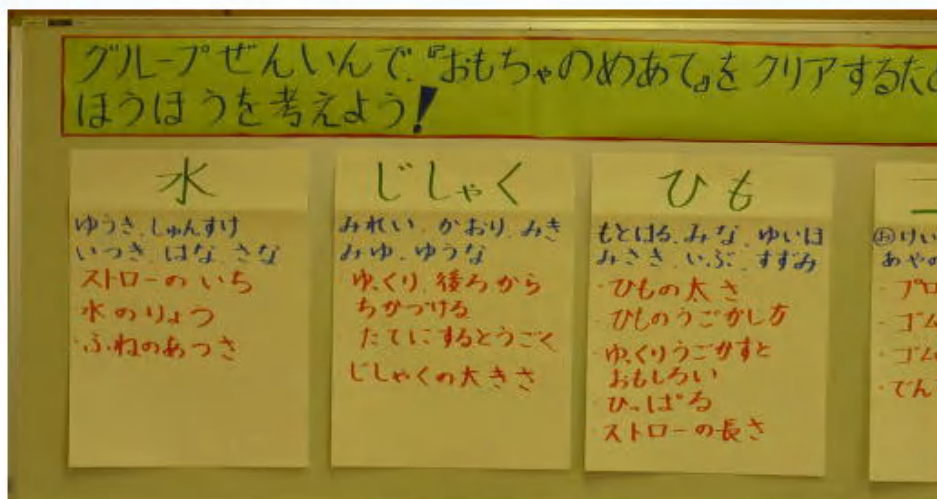 グループぜんいんで、『おもちゃのめあて』をクリアするた
ほうほうを考えよう!
水
ゆうき、しゅんすけ
いつき、はな、さな
ストローのいち
水のりょう
・ふねのあつさ
じしゃく
みれい、かおり、みき
みゆ、ゆうな
ゆっくり、後ろから
ちかづける
たてにするとうごく
じしゃくの大きさ
ひも
もとはる、みな、ゆいほ
みさき、いぶ、すずみ
・ひもの太さ
・ひものうごかし方
・ゆっくりうごかすと
おもしろい
・ひっぱる
ストローの長さ
おけい
あやの
・プロ
・ゴム
・ゴムの
・でん